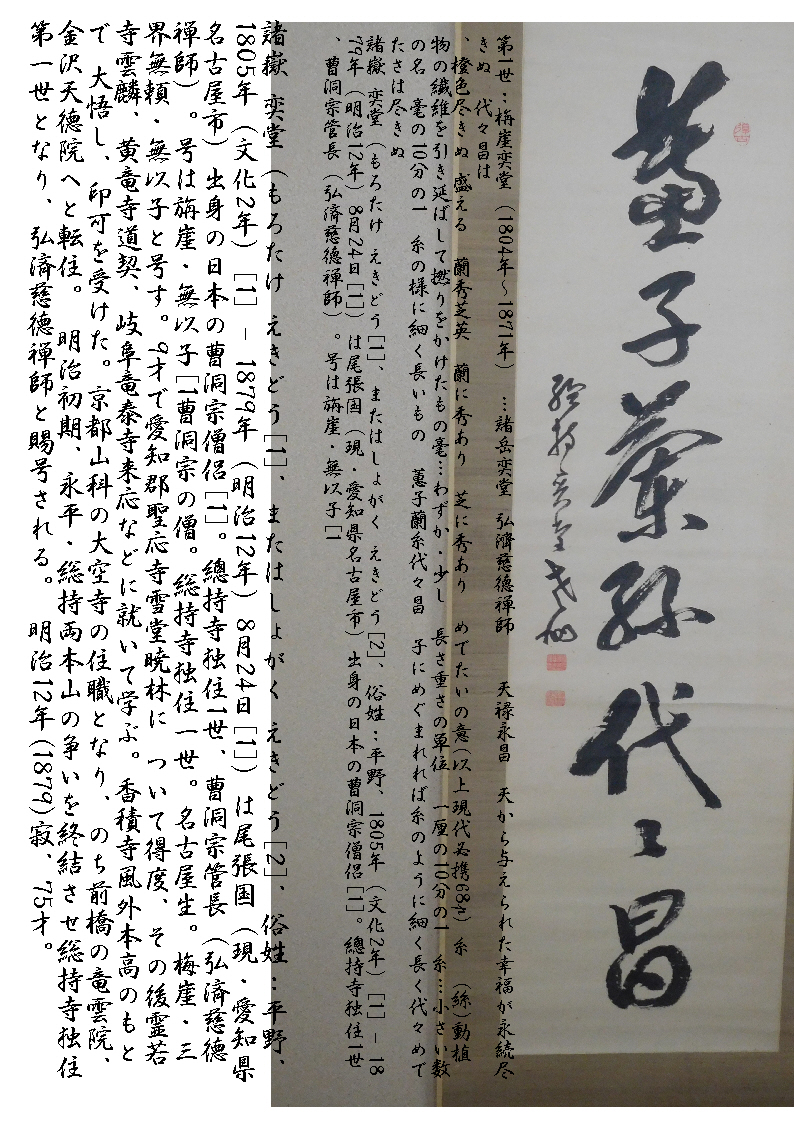 蕙子蘭孫代々昌
總持奕堂老衲
第1世：栴崖奕堂 (1804年～1871年) …諸岳奕堂 弘濟慈徳禅師 天禄永昌 天から与えられた幸福が永続尽
きぬ 代々昌は
、橙色尽きぬ 盛える 蘭秀芝英 蘭に秀あり 芝に秀あり めでたいの意(以上現代必携68p) 糸 (絲)動植
物の繊維を引き延ばして撚りをかけたもの毫…わずか・少し 長さ重さの単位 一厘の10分の一 糸…小さい数
の名 毫の10分の一 糸の様に細く長いもの 蕙子蘭糸代々昌 子にめぐまれれば糸のように細く長く代々めで
たさは尽きぬ
諸嶽 奕堂（もろたけ えきどう[1]、またはしょがく えきどう[2]、俗姓：平野、1805年（文化2年）[1] - 18
79年（明治12年）8月24日[1]）は尾張国（現・愛知県名古屋市）出身の日本の曹洞宗僧侶[1]。總持寺独住1世
、曹洞宗管長（弘済慈徳禅師）。号は旃崖・無以子[1
諸嶽 奕堂（もろたけ えきどう[1]、またはしょがく えきどう[2]、俗姓：平野、
1805年（文化2年）[1] - 1879年（明治12年）8月24日[1]）は尾張国（現・愛知県
名古屋市）出身の日本の曹洞宗僧侶[1]。總持寺独住1世、曹洞宗管長（弘済慈徳
禅師）。号は旃崖・無以子[1曹洞宗の僧。総持寺独住一世。名古屋生。梅崖・三
界無頼・無以子と号す。9才で愛知郡聖応寺雪堂暁林に ついて得度、その後霊若
寺雲麟、黄竜寺道契、岐阜竜泰寺来応などに就いて学ぶ。香積寺風外本高のもと
で 大悟し、印可を受けた。京都山科の大空寺の住職となり、のち前橋の竜雲院、
金沢天徳院へと転住。 明治初期、永平・総持両本山の争いを終結させ総持寺独住
第一世となり、弘済慈徳禅師と賜号される。 明治12年(1879)寂、75才。